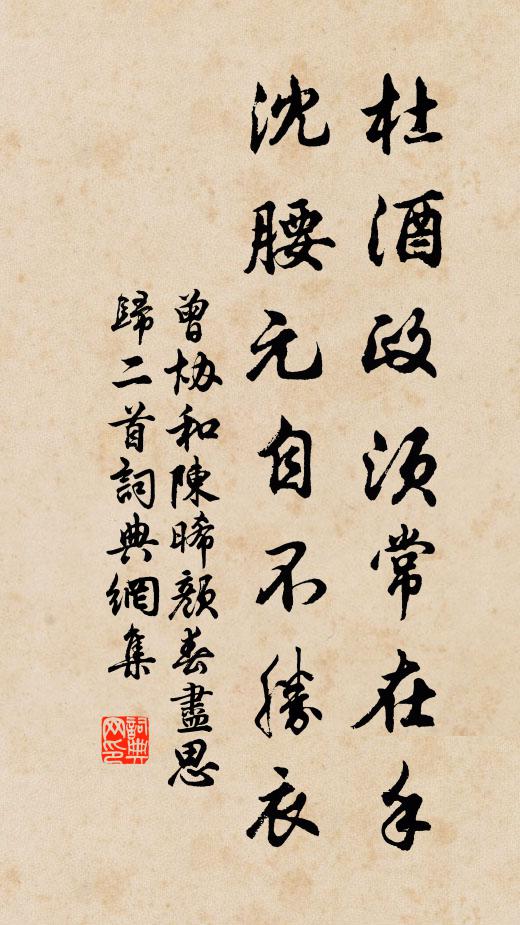 杜酒政須常在手
沈腰元自不勝衣
曾協和陳晞顏春盡思
歸二首詞典網集
詞典
网印